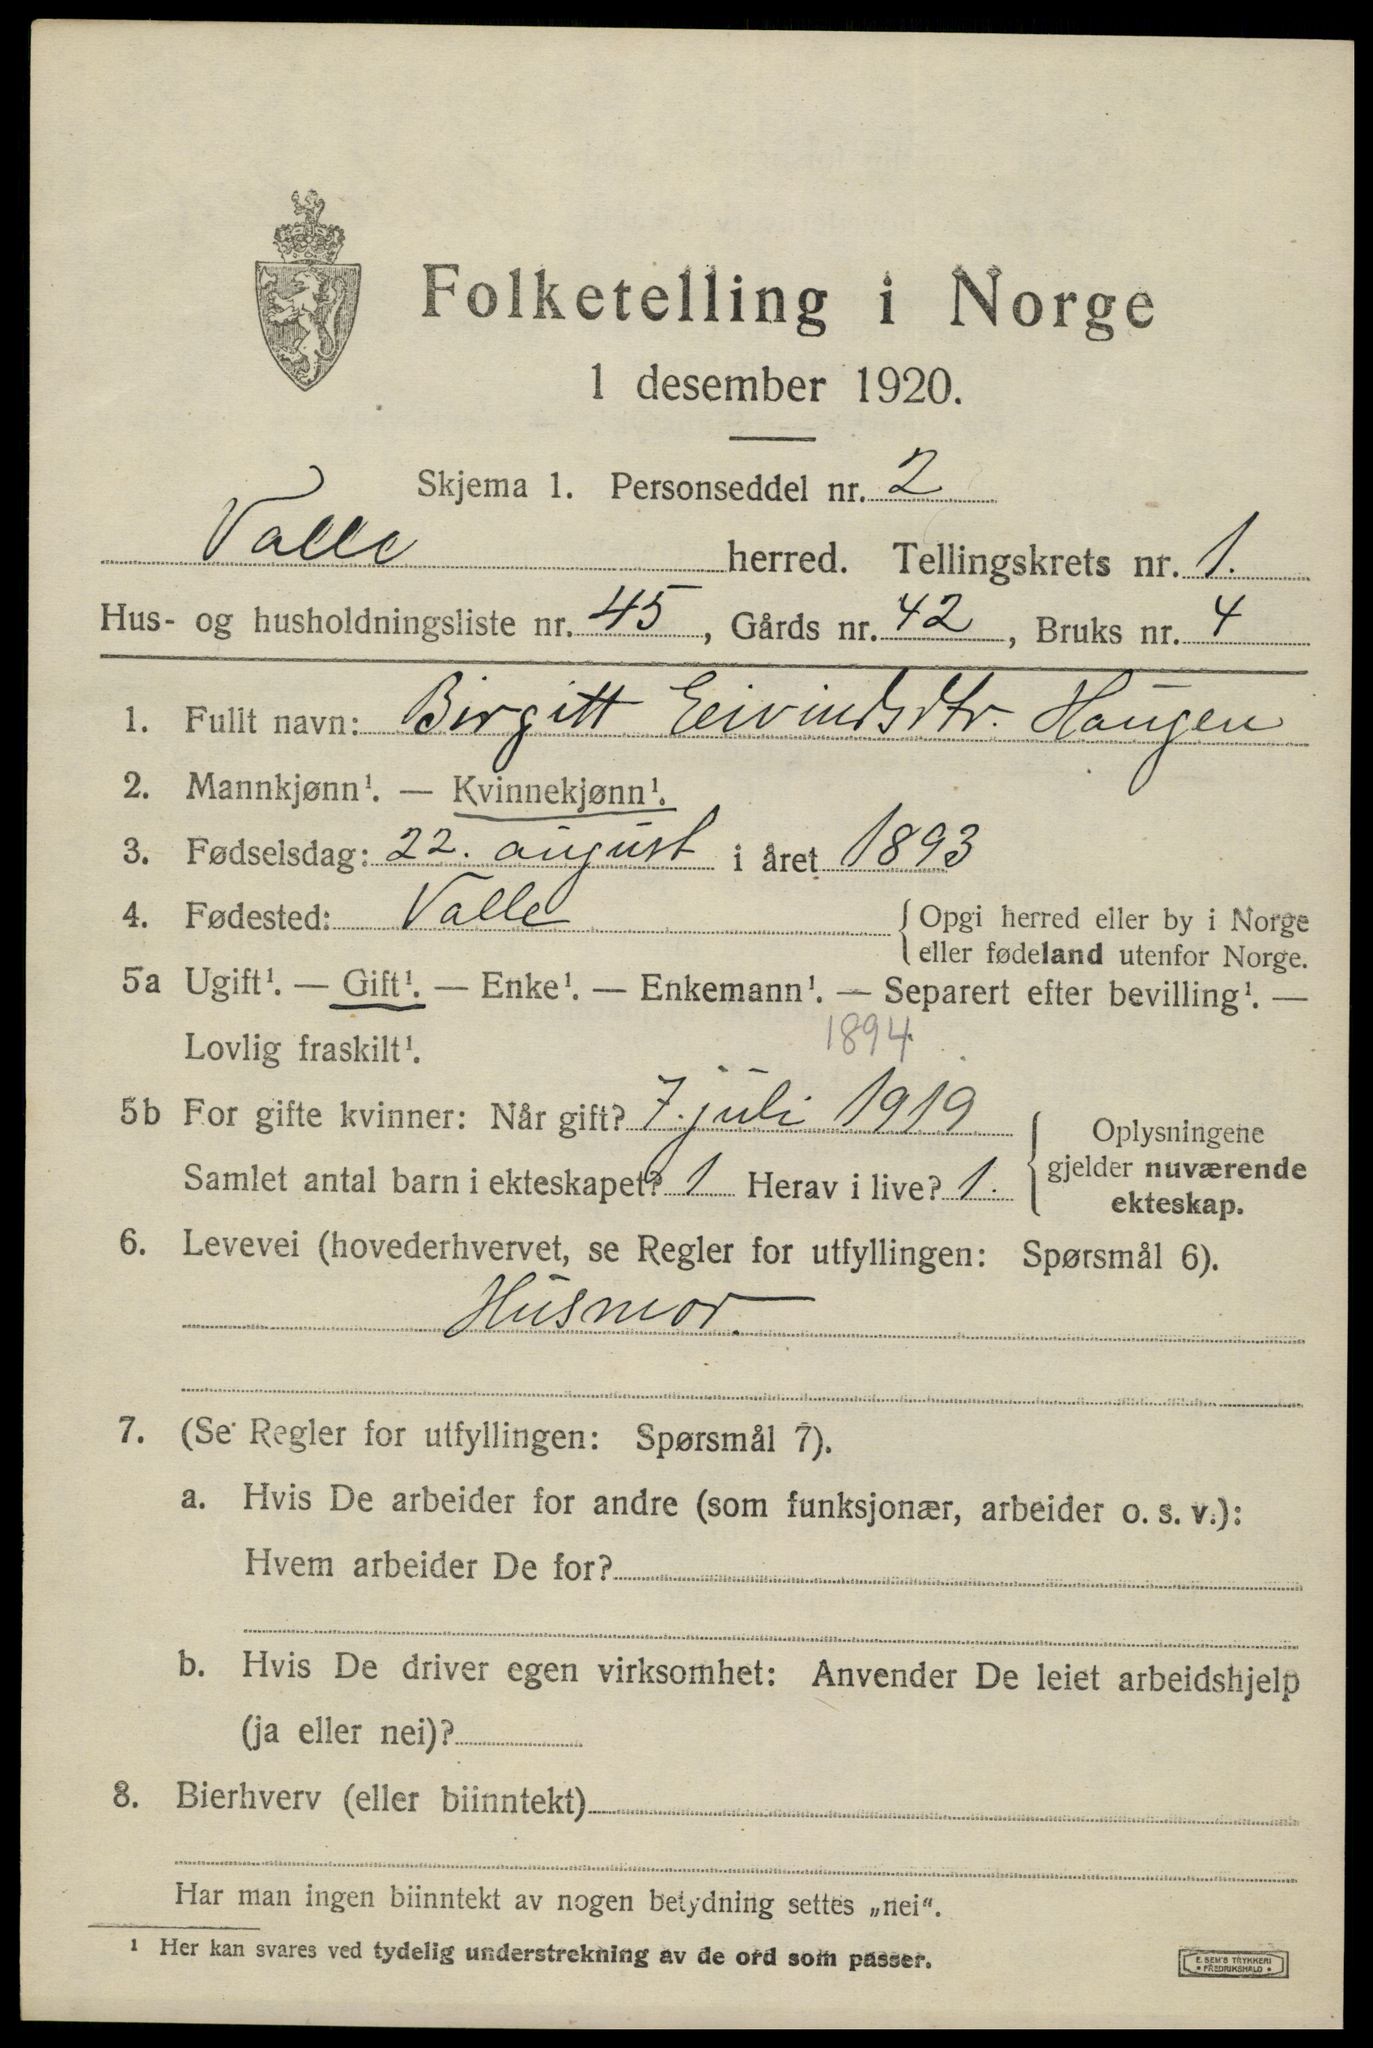 Folketelling i Norge
1 desember 1920.
Skjema 1. Personseddel nr. 2
Valle herred. Tellingskrets nr. 1.
Hus- og husholdningsliste nr. 45, Gårds nr. 42, Bruks nr. 4
1. Fullt navn: Birgitt Eivindsdtr. Haugen
2. Mannkjønn¹. — Kvinnekjønn¹.
3. Fødselsdag: 22. august i året 1893
4. Fødested: Valle { Opgi herred eller by i Norge
eller fødeland utenfor Norge.
5a Ugift¹. — Gift¹. — Enke¹. — Enkemann¹. — Separert efter bevilling¹. —
Lovlig fraskilt¹. 1894
5b For gifte kvinner: Når gift? 7. juli 1919
Samlet antal barn i ekteskapet? 1 Herav i live? 1.
Oplysningene
gjelder nuværende
ekteskap.
6. Levevei (hovederhvervet, se Regler for utfyllingen: Spørsmål 6).
Husmor.
7. (Se Regler for utfyllingen: Spørsmål 7).
a. Hvis De arbeider for andre (som funksjonær, arbeider o. s. v.):
Hvem arbeider De for?
b. Hvis De driver egen virksomhet: Anvender De leiet arbeidshjelp
(ja eller nei)?
8. Bierhverv (eller biinntekt)
Har man ingen biinntekt av nogen betydning settes „nei“.
¹ Her kan svares ved tydelig understrekning av de ord som passer.
E. SEM'S TRYKKERI
• FREDRIKSHALD •